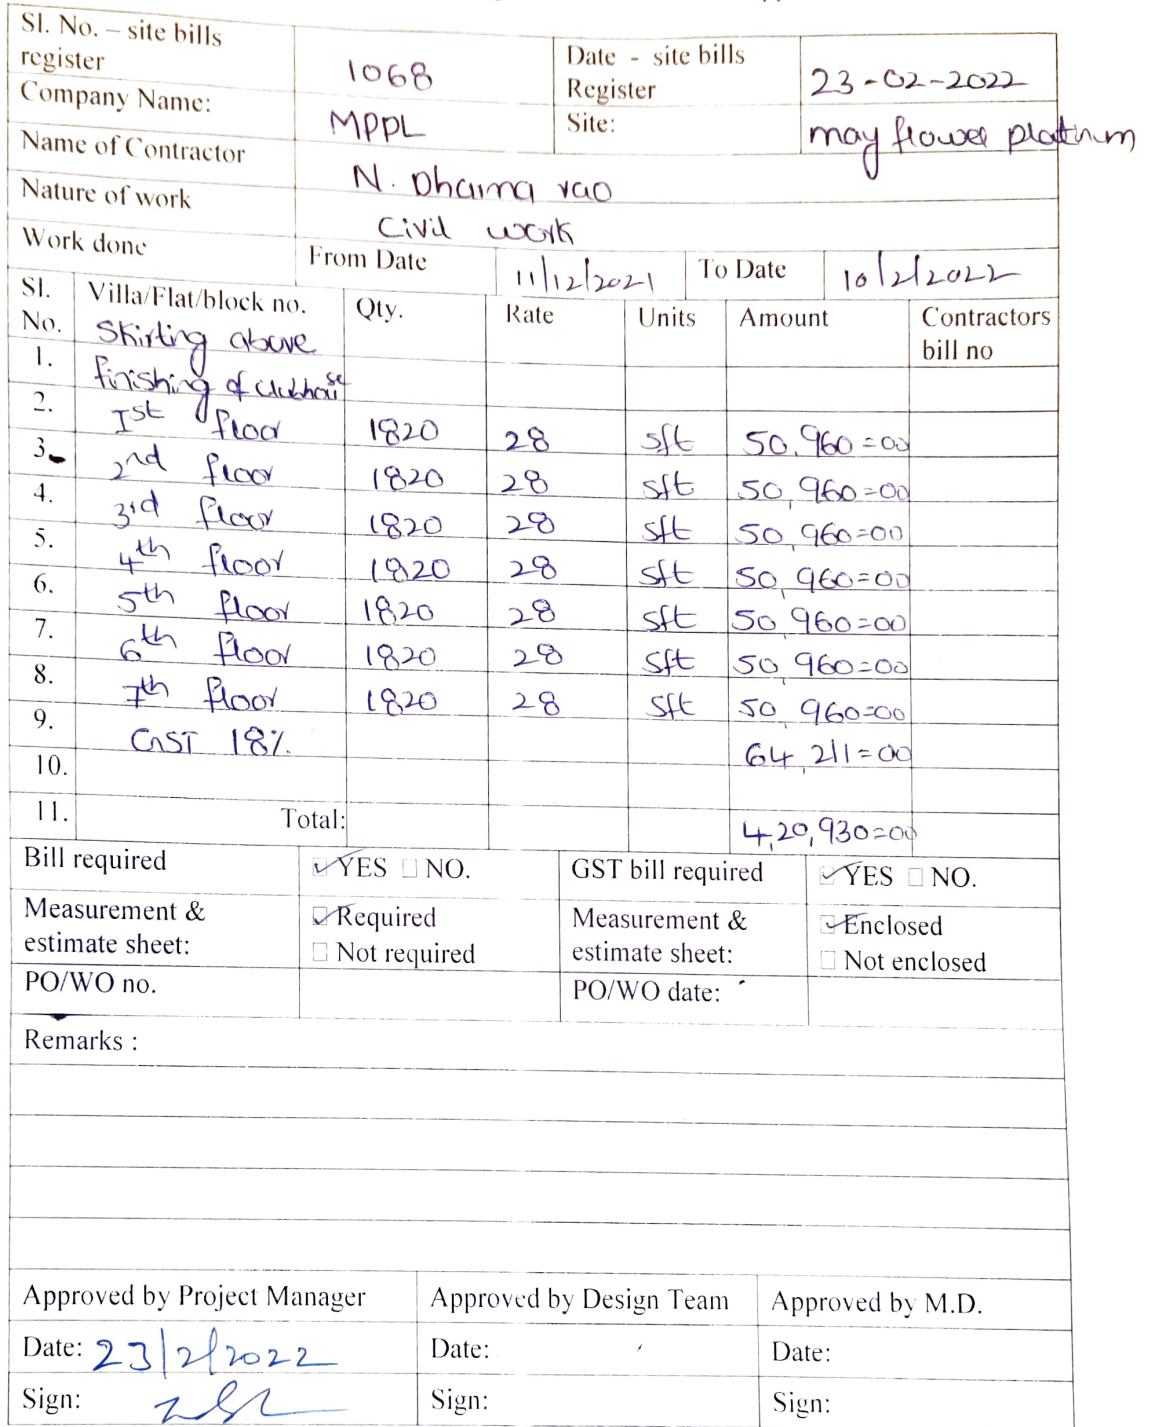 Sl. No. – site bills register 1068 Date - site bills Register 23-02-2022
Company Name: MPPL Site: may flower platinum
Name of Contractor N. Dharma rao
Nature of work Civil work
Work done From Date 11/12/2021 To Date 10/2/2022
Sl. No. Villa/Flat/block no. Qty. Rate Units Amount Contractors bill no
Skirting above
1. finishing of clubhouse
2. Ist floor 1820 28 sft 50,960=00
3. 2nd floor 1820 28 sft 50,960=00
4. 3rd floor 1820 28 sft 50,960=00
5. 4th floor 1820 28 sft 50,960=00
6. 5th floor 1820 28 sft 50,960=00
7. 6th floor 1820 28 sft 50,960=00
8. 7th floor 1820 28 sft 50,960=00
9. GST 18%. 64,211=00
10.
11. Total: 4,20,930=00
Bill required YES NO. GST bill required YES NO.
Measurement & estimate sheet: Required Measurement & estimate sheet: Enclosed
Not required Not enclosed
PO/WO no. PO/WO date:
Remarks :
Approved by Project Manager Approved by Design Team Approved by M.D.
Date: 23/2/2022 Date: Date:
Sign: Sign: Sign: